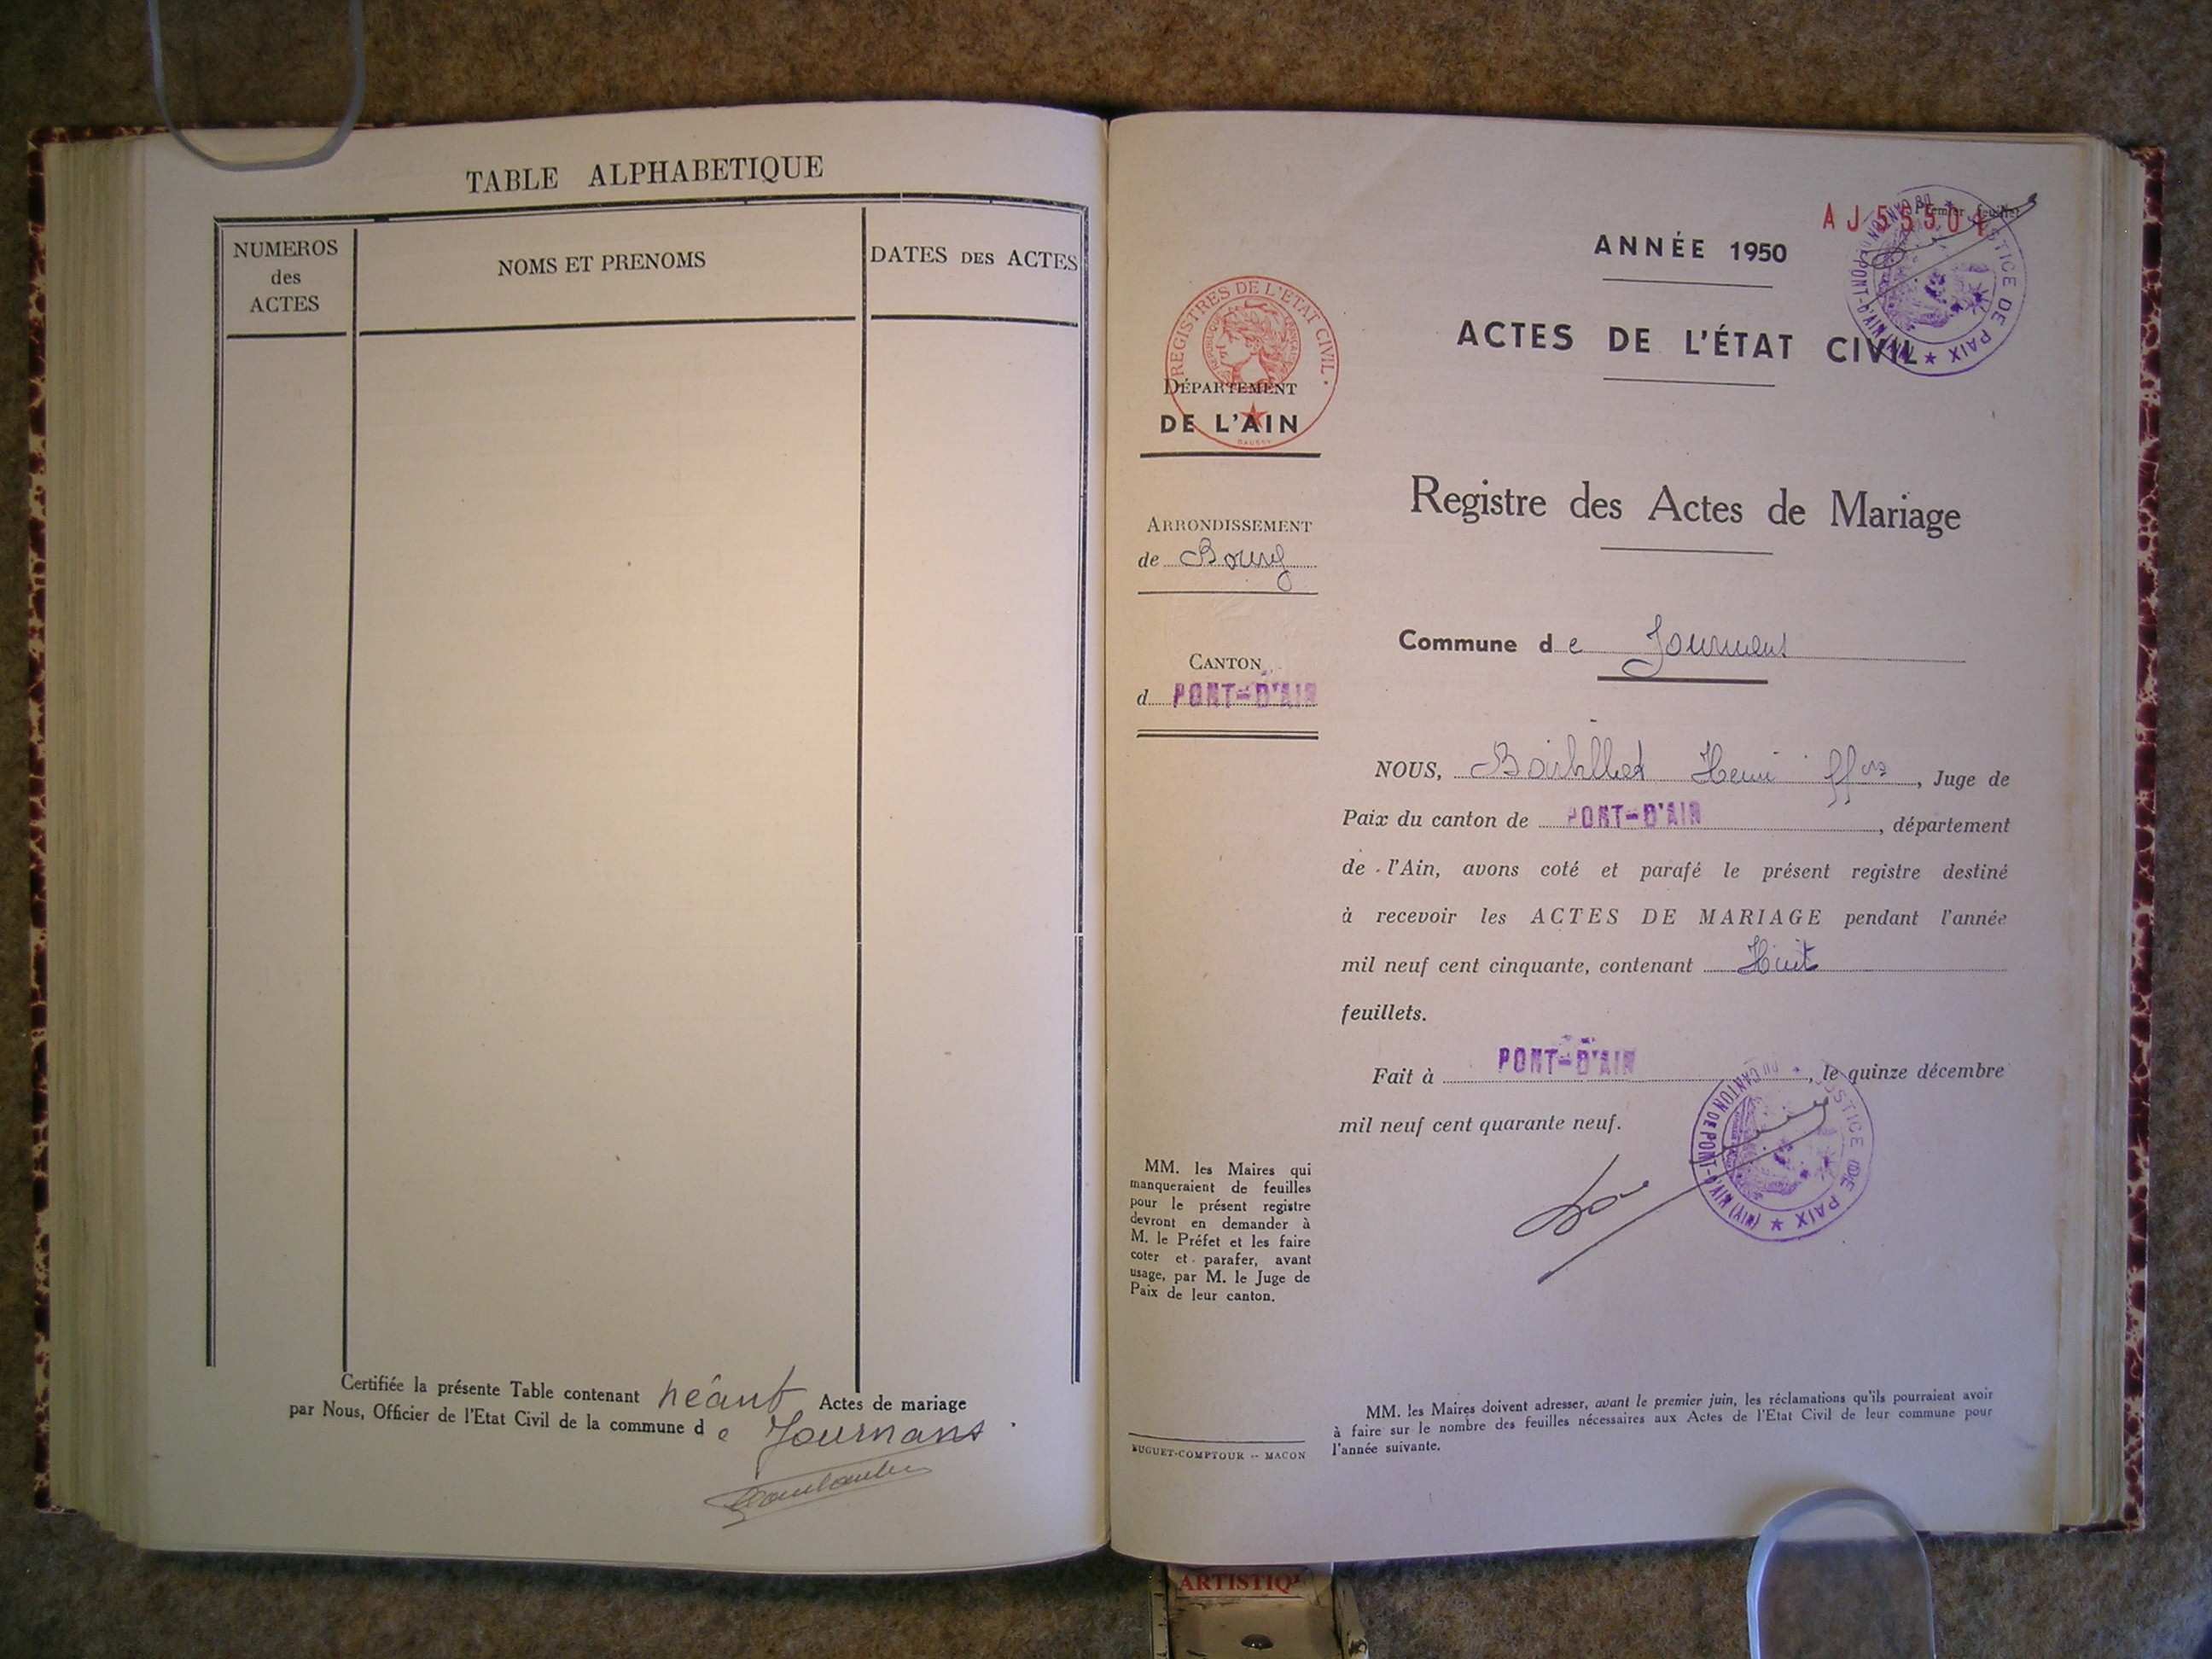 TABLE ALPHABETIQUE
NUMEROS
des
ACTES
NOMS ET PRENOMS
DATES DES ACTES
Certifiée la présente Table contenant néant Actes de mariage
par Nous, Officier de l'Etat Civil de la commune d e Journans
AJ 55501
Premier feuillet
JUSTICE DE PAIX ★ DU CANTON DE PONT-D'AIN (AIN) ★
ANNÉE 1950
ACTES DE L'ÉTAT CIVIL
REGISTRES DE L'ETAT CIVIL.
DÉPARTEMENT
DE L'AIN
ARRONDISSEMENT
de Bourg
CANTON
d PONT-D'AIN
Registre des Actes de Mariage
Commune d e Journans
NOUS, Henri, Juge de
Paix du canton de PONT-D'AIN, département
de l'Ain, avons coté et parafé le présent registre destiné
à recevoir les ACTES DE MARIAGE pendant l'année
mil neuf cent cinquante, contenant Huit
feuillets.
Fait à PONT-D'AIN, le quinze décembre
mil neuf cent quarante neuf.
JUSTICE DE PAIX ★ DU CANTON DE PONT-D'AIN (AIN) ★
MM. les Maires qui
manqueraient de feuilles
pour le présent registre
devront en demander à
M. le Préfet et les faire
coter et parafer, avant
usage, par M. le Juge de
Paix de leur canton.
MM. les Maires doivent adresser, avant le premier juin, les réclamations qu'ils pourraient avoir
à faire sur le nombre des feuilles nécessaires aux Actes de l'Etat Civil de leur commune pour
l'année suivante.
BUGUET-COMPTOUR -- MACON
ARTISTIQ